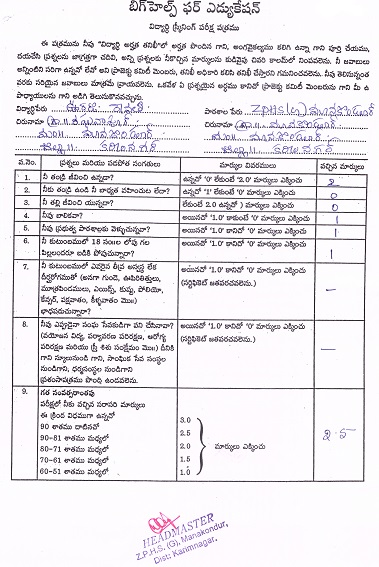 బిగ్‌హెల్ప్ ఫర్ ఎడ్యుకేషన్
విద్యార్థి స్క్రీనింగ్ పరీక్ష పత్రము
ఈ పత్రమును నీవు "విద్యార్థి అర్హత తనిఖీ"లో అర్హత పొందిన గాని, అంగవైకల్యము కలిగి ఉన్నా గాని పూర్తి చేయుము,
దయచేసి ప్రశ్నలను జాగ్రత్తగా చదివి, అన్ని ప్రశ్నలను నీకొచ్చిన మార్కులను కుడివైపు చివరి కాలమ్‌లో నింపవలెను. నీ జవాబులు
అన్నింటిని సరిగా ఉన్నవో లేవో అని ప్రాజెక్టు కమిటీ మెంబరు, తనిఖీ అధికారి కలిసి తనిఖీ చేస్తారని గమనించవలెను. నీవు తెలిసినంతవ
వరకు సరియైన జవాబులు మాత్రమే వ్రాయవలెను. ఒకవేళ ఏ ప్రశ్నయైన అర్థము కానిచో ప్రాజెక్ట్ కమిటీ మెంబరును గాని మీ ఉ
పాధ్యాయులను గాని అడిగి తెలుసుకొనవచ్చును.
విద్యార్థి పేరు
పాఠశాల పేరు : ZPHS(G) మానకొండూర్
చిరునామా
చిరునామా
మం|| మానకొండూర్
మం|| మానకొండూర్
జిల్లా|| కరీంనగర్
జిల్లా|| కరీంనగర్
వ.నెం. ప్రశ్నలు మరియు వడపోత సంగతులు మార్కుల వివరములు వచ్చిన మార్కులు
1. నీ తండ్రి జీవించి ఉన్నాడా? ఉన్నచో '0' లేకుంటే '2.0' మార్కులు ఎక్కించు 2
2. నీకు తండ్రి ఉండి నీ బాధ్యత వహించుట లేదా? ఉన్నచో '1' లేకుంటే '0' మార్కులు ఎక్కించు 0
3. నీ తల్లి జీవించి యున్నదా? లేకుంటే 2.0 ఉన్నచో ) మార్కులు ఎక్కించు 0
4. నీవు బాలికవా? అయినచో '1.0' కాకుంటే '0' మార్కులు ఎక్కించు 1
5. నీవు ప్రభుత్వ పాఠశాలకు వెళ్ళుచున్నావా? అయినచో '1.0' కానిచో '0' మార్కులు ఎక్కించు 1
6. నీ కుటుంబములో 18 సం॥ల లోపు గల
పిల్లలందరూ బడికి పోవుచున్నారా? అయినచో '1.0' కానిచో '0' మార్కులు ఎక్కించు 1
7. నీ కుటుంబములో ఎవరైన తీవ్ర అస్వస్థత లేక
దీర్ఘరోగముతో (అనగా గుండె, ఊపిరితిత్తులు,
మూత్రపిండములు, ఎయిడ్స్, కుష్ఠు, పోలియో,
కేన్సర్, పక్షవాతం, కీళ్ళవాతం మొ॥)
బాధపడుచున్నారా?
అయినచో '1.0' కానిచో '0' మార్కులు ఎక్కించు
(సర్టిఫికెట్ జతపరచవలెను.) —
8. నీవు ఎప్పుడైనా సంఘ సేవకుడిగా పని చేసినావా?
(వయోజన విద్య, పర్యావరణ పరిరక్షణ, ఆరోగ్య
పరిరక్షణ మరియు స్త్రీ శిశు సంక్షేమం మొ॥) దీనికి
గాని స్కూలునుండి గాని, సాంఘిక సేవ సంస్థల
నుండిగాని, ధర్మసంస్థల నుండిగాని
ప్రశంసాపత్రము పొంది ఉండవలెను.
అయినచో '1.0' కానిచో '0' మార్కులు ఎక్కించు
(సర్టిఫికెట్ జతపరచవలెను.) —
9. గత సంవత్సరాంతపు
పరీక్షలో నీకు వచ్చిన సరాసరి మార్కులు
ఈ క్రింద విధముగా ఉన్నచో
90 శాతము దాటినచో 3.0
90-81 శాతము మధ్యలో 2.5
80-71 శాతము మధ్యలో 2.0 మార్కులు ఎక్కించు
70-61 శాతము మధ్యలో 1.5
60-51 శాతము మధ్యలో 1.0
2.5
HEADMASTER
Z.P.H.S. (G), Manakondur,
Dist: Karimnagar.